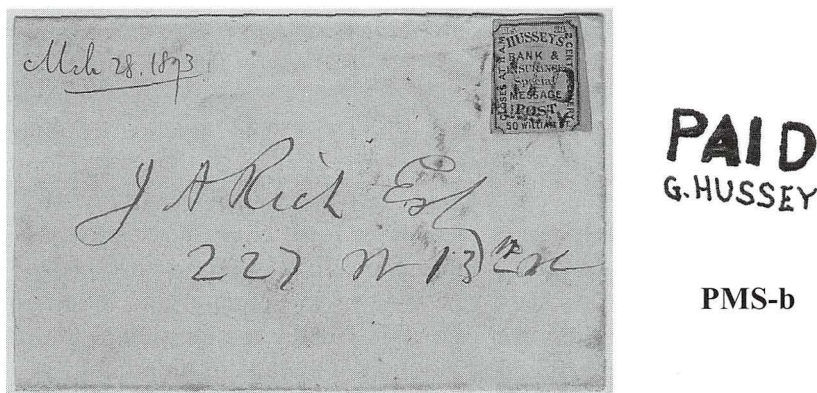 Mch 28. 1873
HUSSEY'S
BANK &
INSURANCE
Special
MESSAGE
POST
50 WILLIAM
CLOSES AT
J A Rich Esq
227 W 13th
PAID
G. HUSSEY
PMS-b